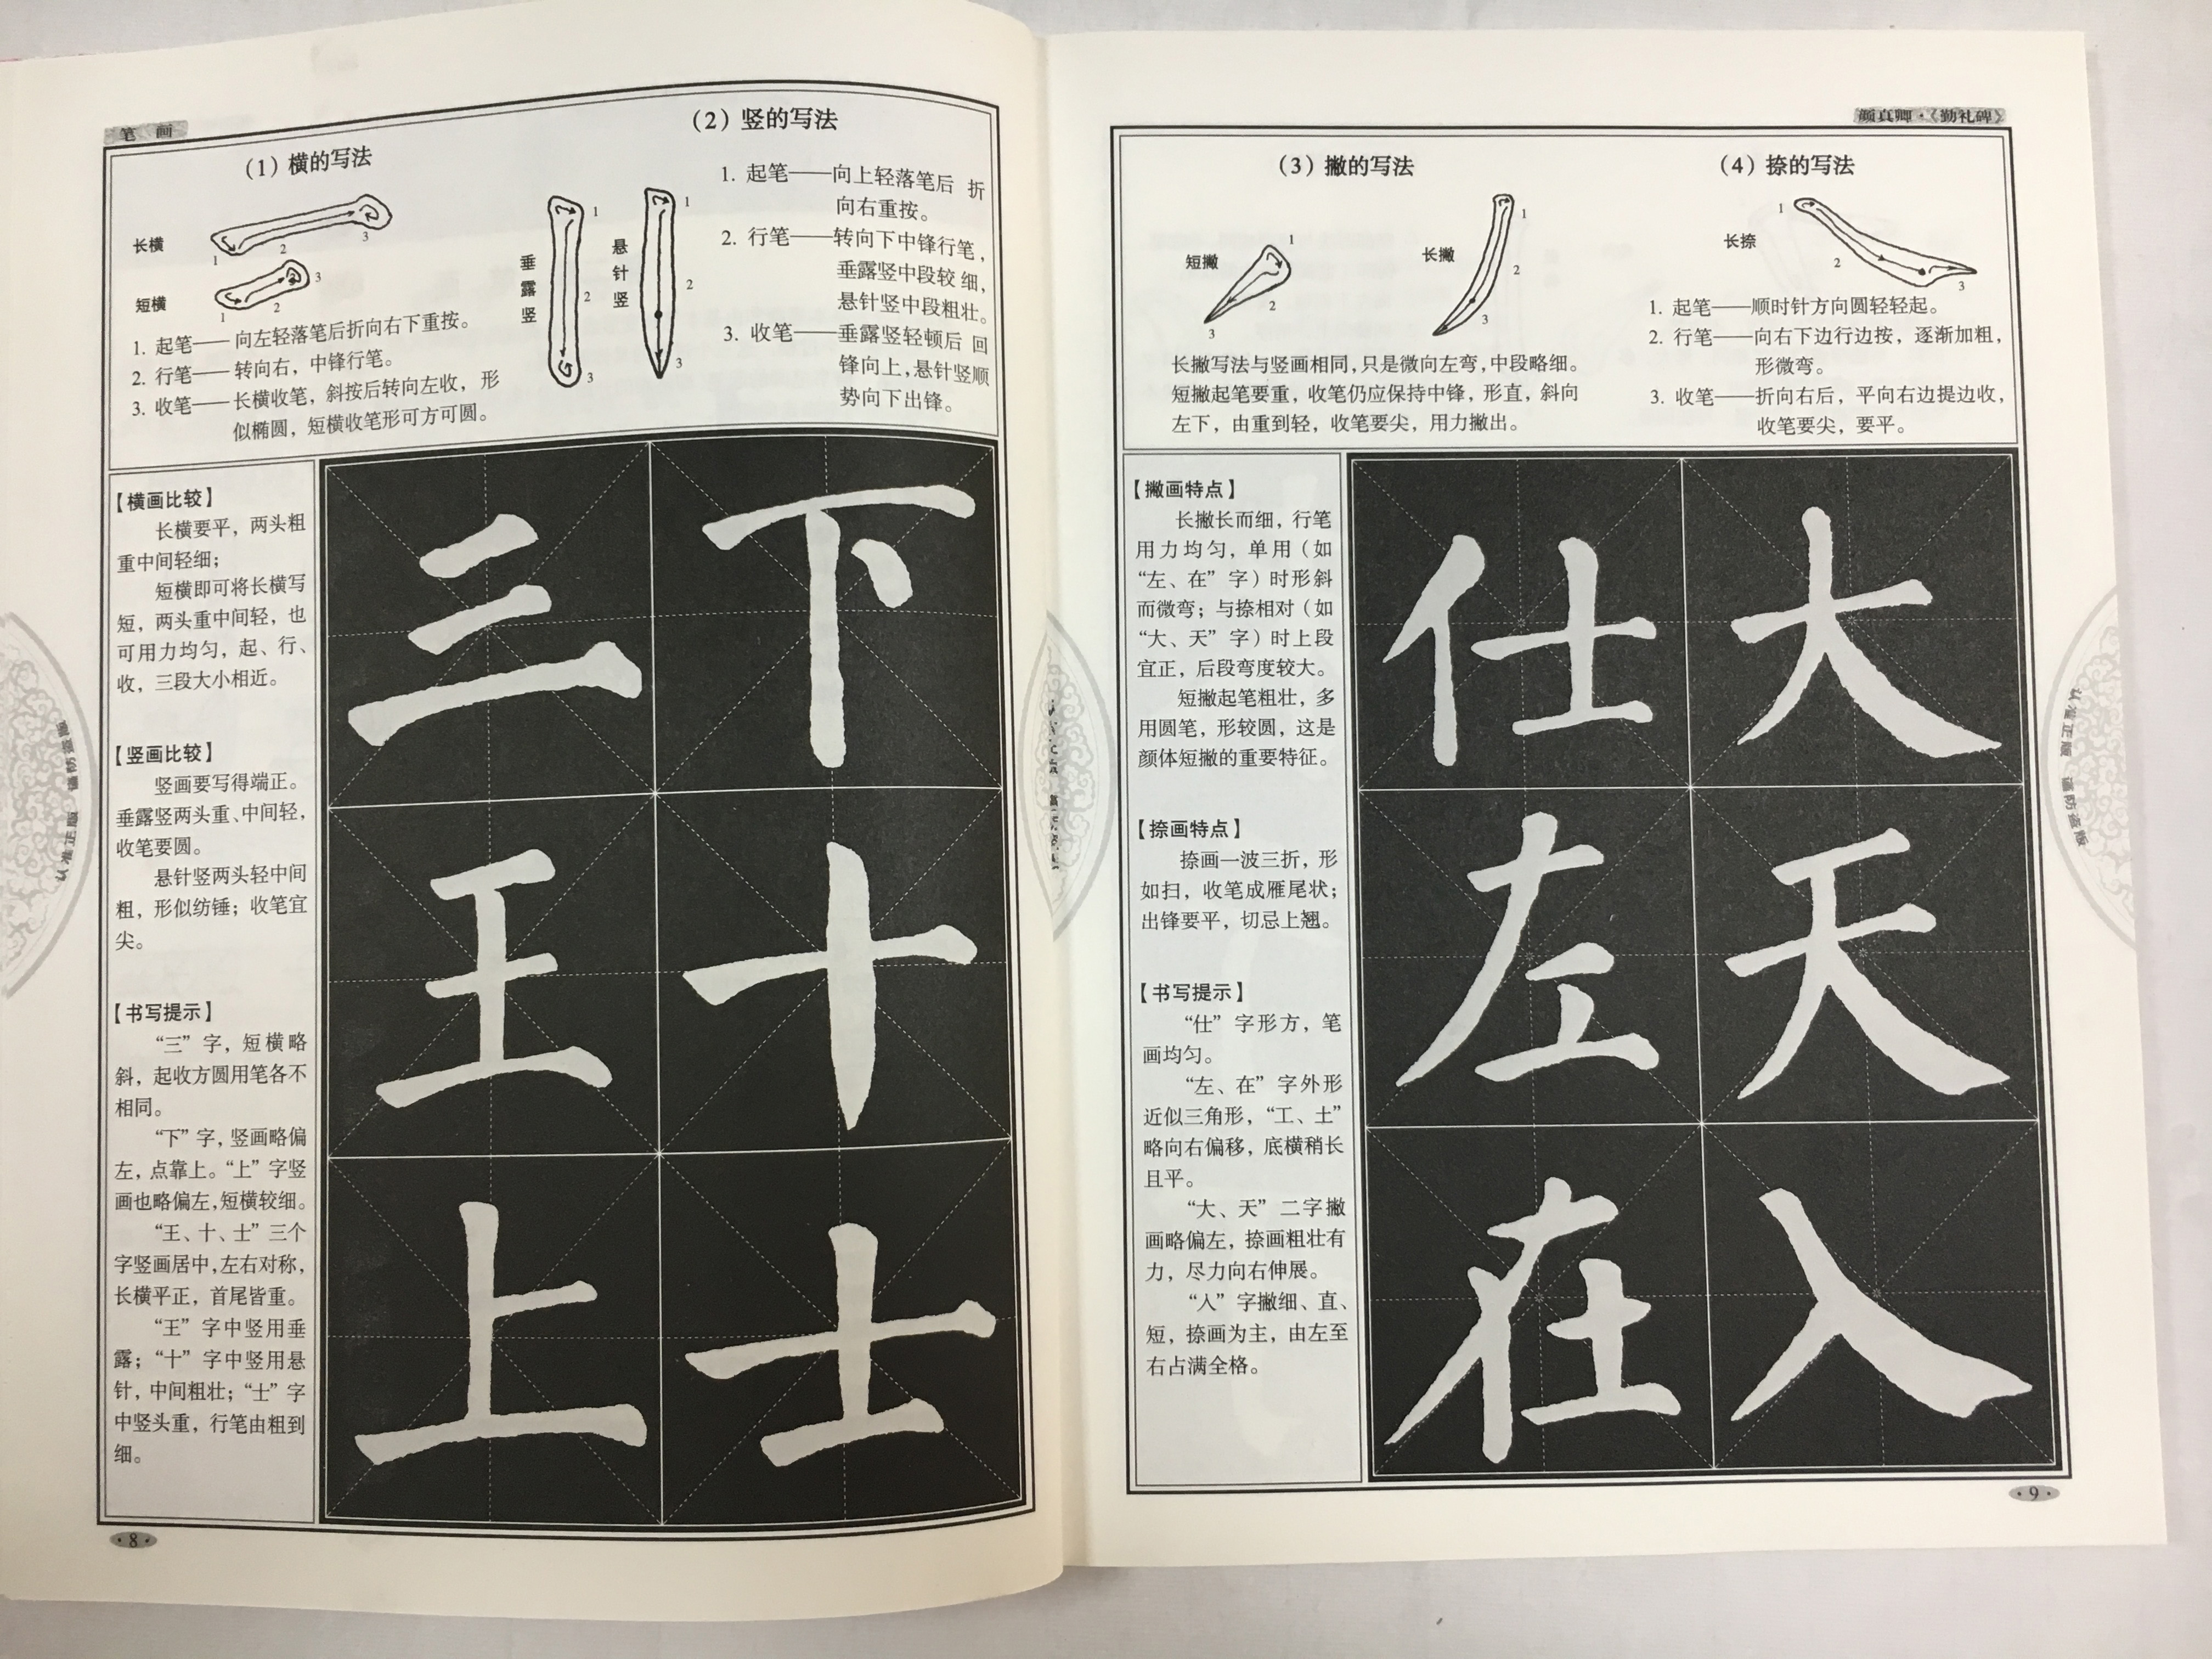 笔 画
(1) 横的写法
长横
1
2
3
短横
1
2
3
1. 起笔——向左轻落笔后折向右下重按。
2. 行笔——转向右，中锋行笔。
3. 收笔——长横收笔，斜按后转向左收，形
似椭圆，短横收笔形可方可圆。
(2) 竖的写法
垂露竖
1
2
3
悬针竖
1
2
3
1. 起笔——向上轻落笔后 折
向右重按。
2. 行笔——转向下中锋行笔，
垂露竖中段较细，
悬针竖中段粗壮。
3. 收笔——垂露竖轻顿后 回
锋向上，悬针竖顺
势向下出锋。
【横画比较】
长横要平，两头粗
重中间轻细；
短横即可将长横写
短，两头重中间轻，也
可用力均匀，起、行、
收，三段大小相近。
【竖画比较】
竖画要写得端正。
垂露竖两头重、中间轻，
收笔要圆。
悬针竖两头轻中间
粗，形似纺锤；收笔宜
尖。
【书写提示】
“三”字，短横略
斜，起收方圆用笔各不
相同。
“下”字，竖画略偏
左，点靠上。“上”字竖
画也略偏左，短横较细。
“王、十、士”三个
字竖画居中，左右对称，
长横平正，首尾皆重。
“王”字中竖用垂
露；“十”字中竖用悬
针，中间粗壮；“士”字
中竖头重，行笔由粗到
细。
三 下
王 十
上 士
认准正版 谨防盗版
·8·
颜真卿·《勤礼碑》
(3) 撇的写法
短撇
1
2
3
长撇
1
2
3
长撇写法与竖画相同，只是微向左弯，中段略细。
短撇起笔要重，收笔仍应保持中锋，形直，斜向
左下，由重到轻，收笔要尖，用力撇出。
(4) 捺的写法
长捺
1
2
3
1. 起笔——顺时针方向圆轻轻起。
2. 行笔——向右下边行边按，逐渐加粗，
形微弯。
3. 收笔——折向右后，平向右边提边收，
收笔要尖，要平。
【撇画特点】
长撇长而细，行笔
用力均匀，单用（如
“左、在”字）时形斜
而微弯；与捺相对（如
“大、天”字）时上段
宜正，后段弯度较大。
短撇起笔粗壮，多
用圆笔，形较圆，这是
颜体短撇的重要特征。
【捺画特点】
捺画一波三折，形
如扫，收笔成雁尾状；
出锋要平，切忌上翘。
【书写提示】
“仕”字形方，笔
画均匀。
“左、在”字外形
近似三角形，“工、土”
略向右偏移，底横稍长
且平。
“大、天”二字撇
画略偏左，捺画粗壮有
力，尽力向右伸展。
“人”字撇细、直、
短，捺画为主，由左至
右占满全格。
仕 大
左 天
在 入
认准正版 谨防盗版
·9·